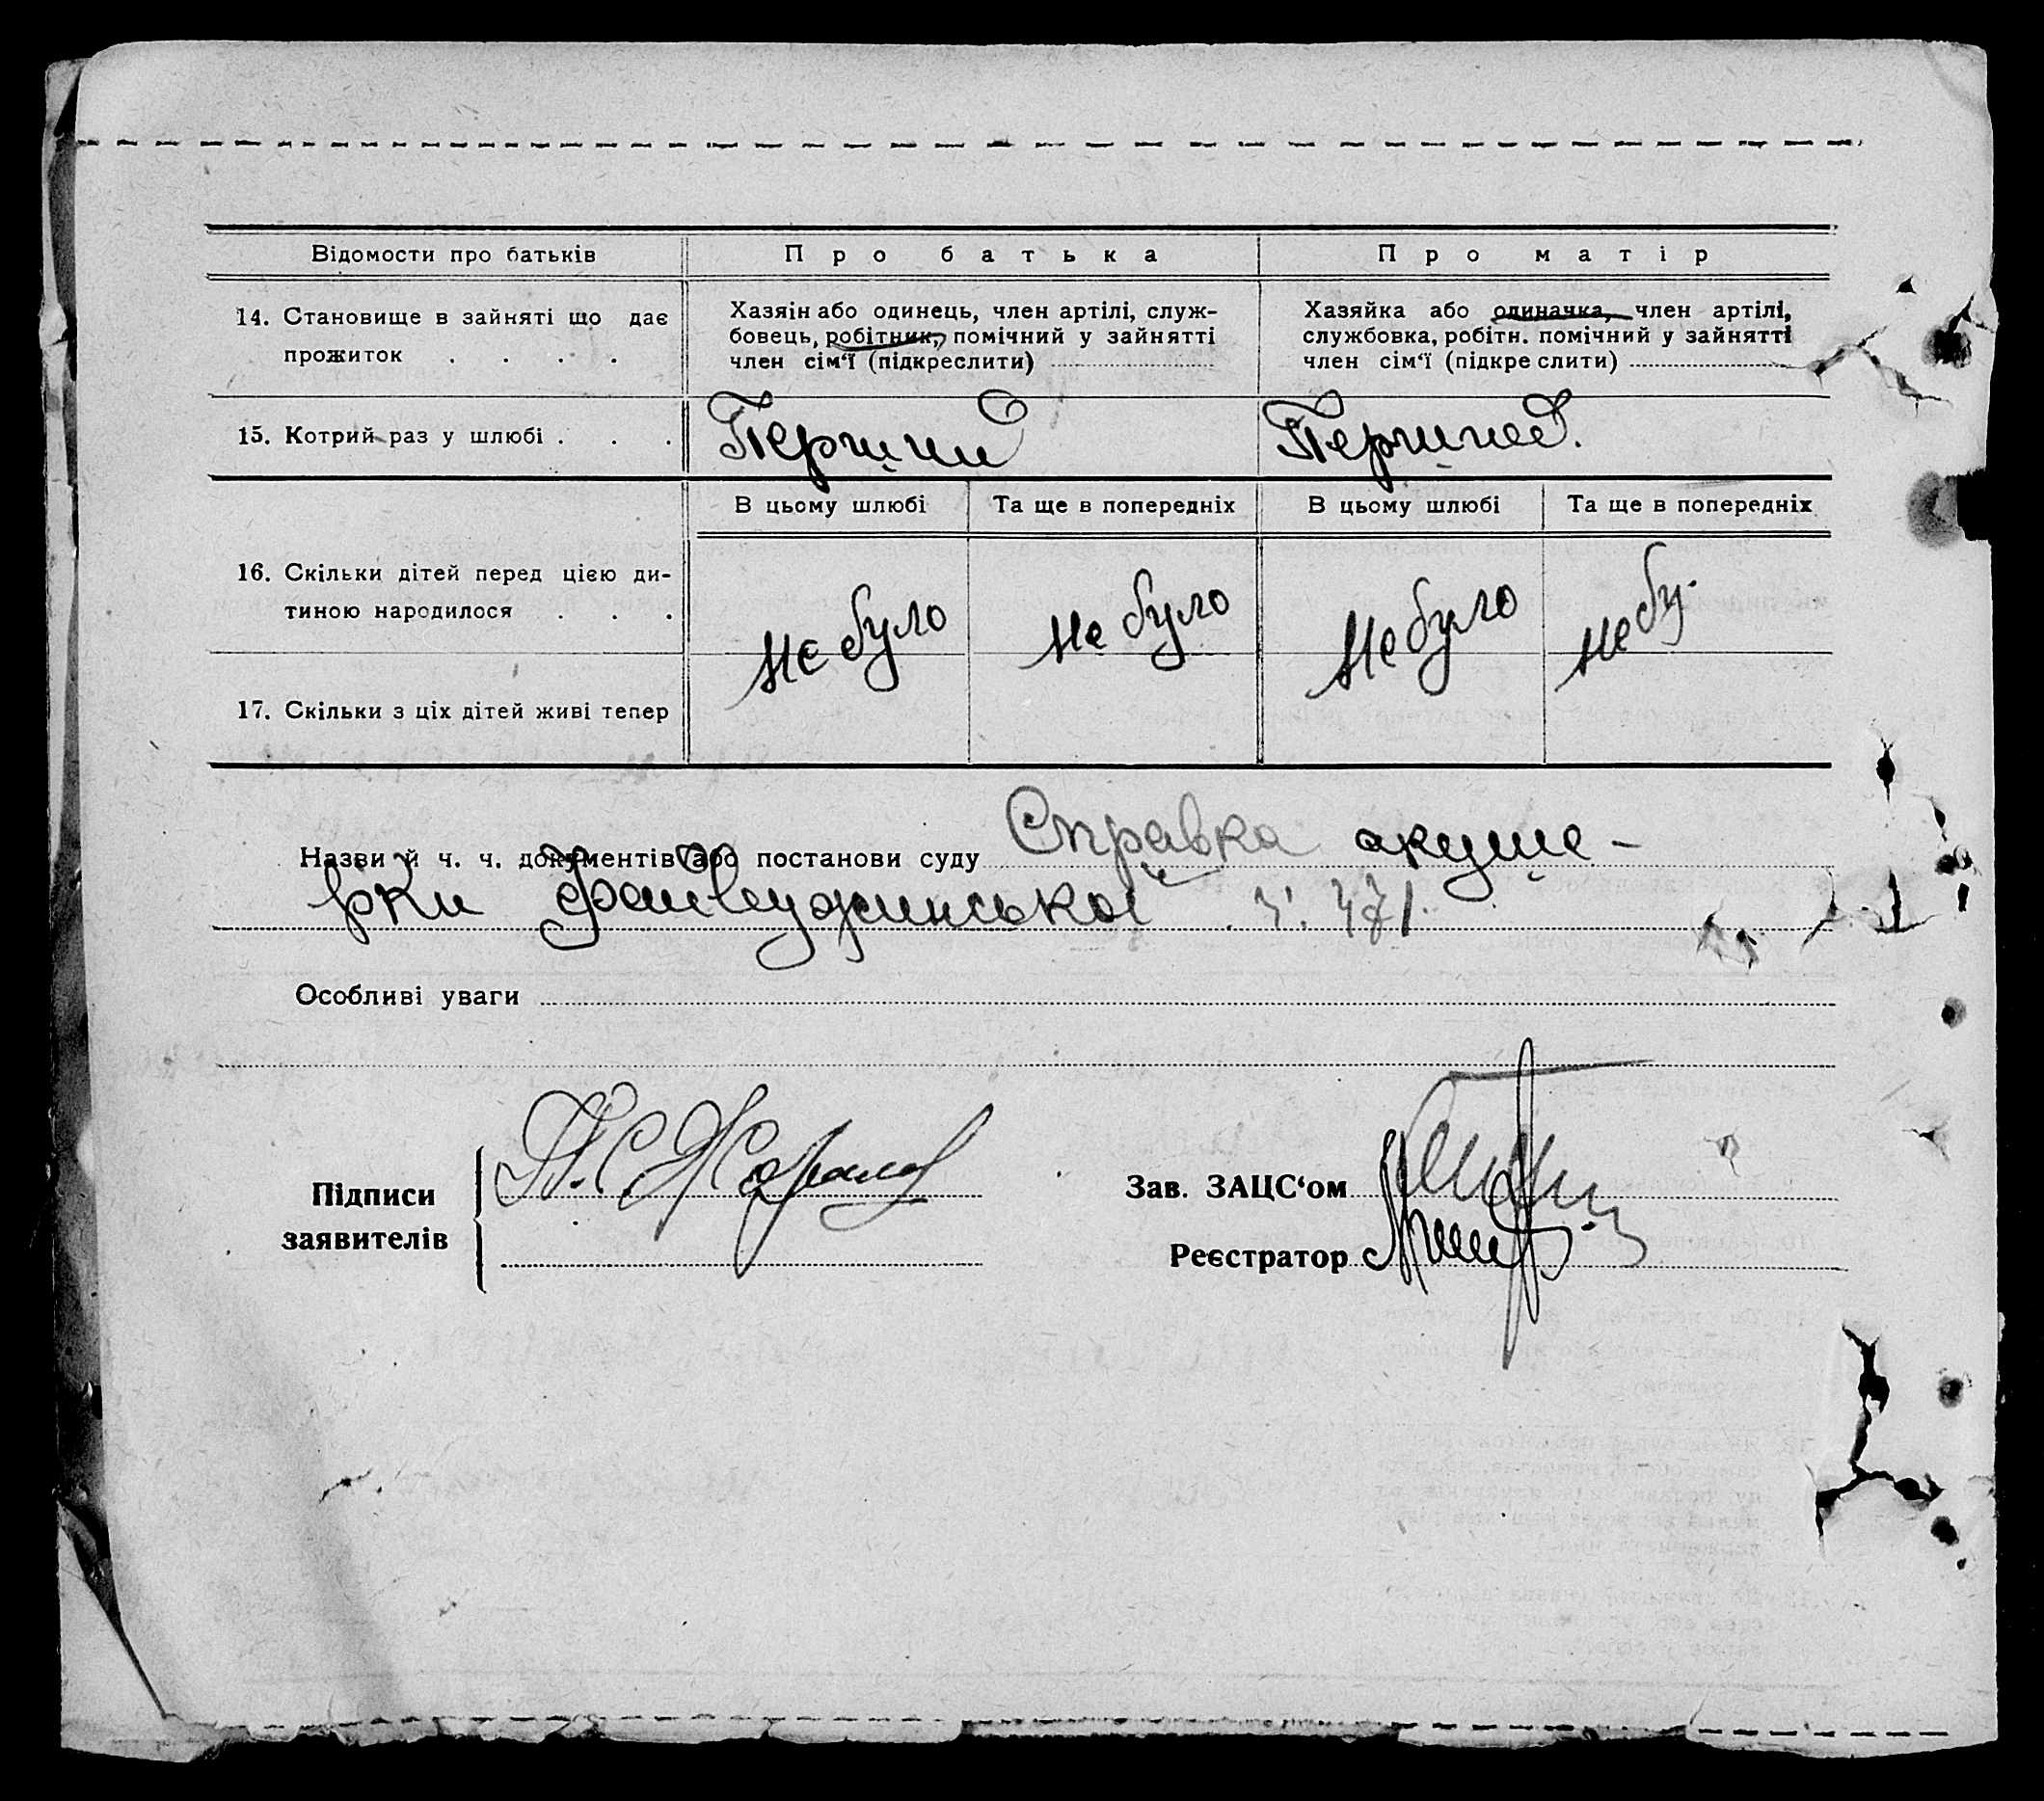 Відомости про батьків
Про батька
Про матір
14. Становище в зайняті що дає
прожиток . . . .
Хазяін або одинець, член артілі, служ-
бовець, робітник, помічний у зайнятті
член сім‘ї (підкреслити)
Хазяйка або одиначка, член артілі,
службовка, робітн. помічний у зайнятті
член сім‘ї (підкреслити)
15. Котрий раз у шлюбі . . .
Перший
Перший.
В цьому шлюбі
Та ще в попередніх
В цьому шлюбі
Та ще в попередніх
16. Скільки дітей перед цією ди-
тиною народилося . . .
не було
не було
не було
не бу.
17. Скільки з ціх дітей живі тепер
Назви й ч. ч. документів або постанови суду Справка акуше-
рки ч. 471.
Особливі уваги
Підписи
заявителів
Зав. ЗАЦС‘ом
Реєстратор